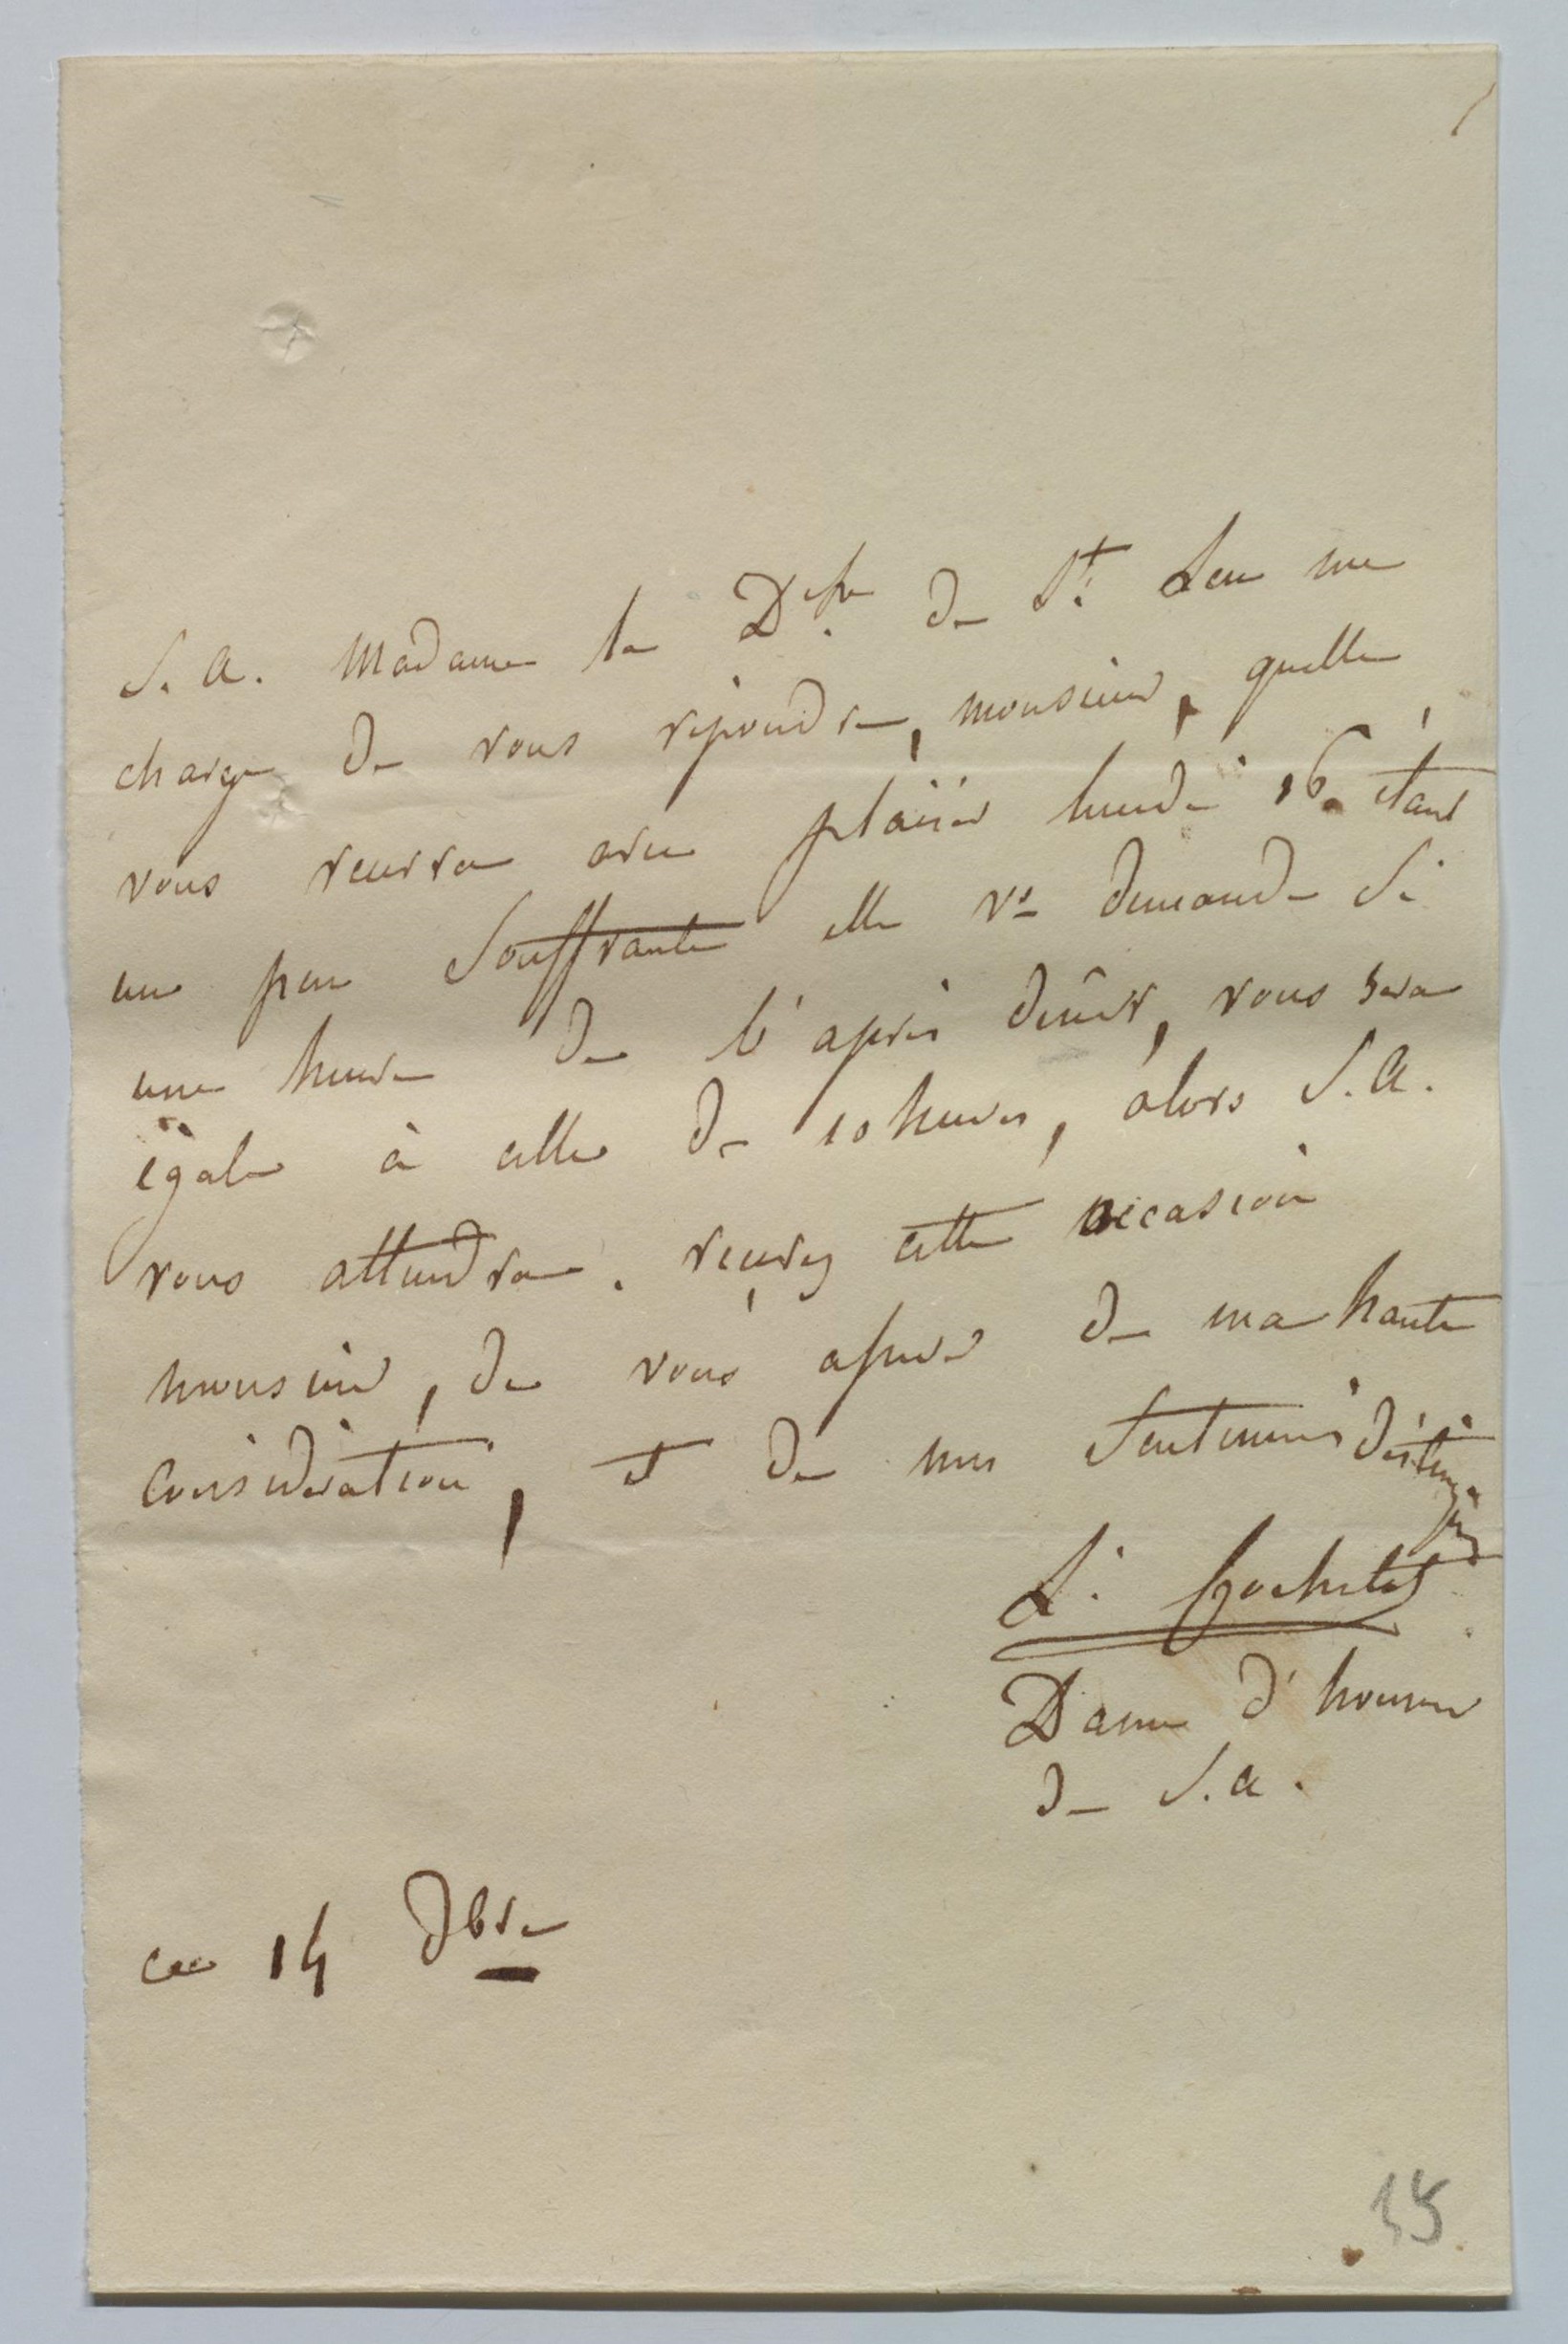 S. A. Madame la D.sse de St. Leu me
charge de vous répondre, monsieur, quelle
vous recevra avec plaisir lundi 16. étant
un peu Souffrante elle vs demande Si
une heure de l'après dinér, vous sera
égale à celle de 10 heures, alors S. A.
vous attendra. recevez cette occasion
monsieur, de vous assurer de ma haute
Considération, et de mes Sentimens distingués
L. Cochelet
Dame d'honneur
de S. a.
ce 14 Dbre
15